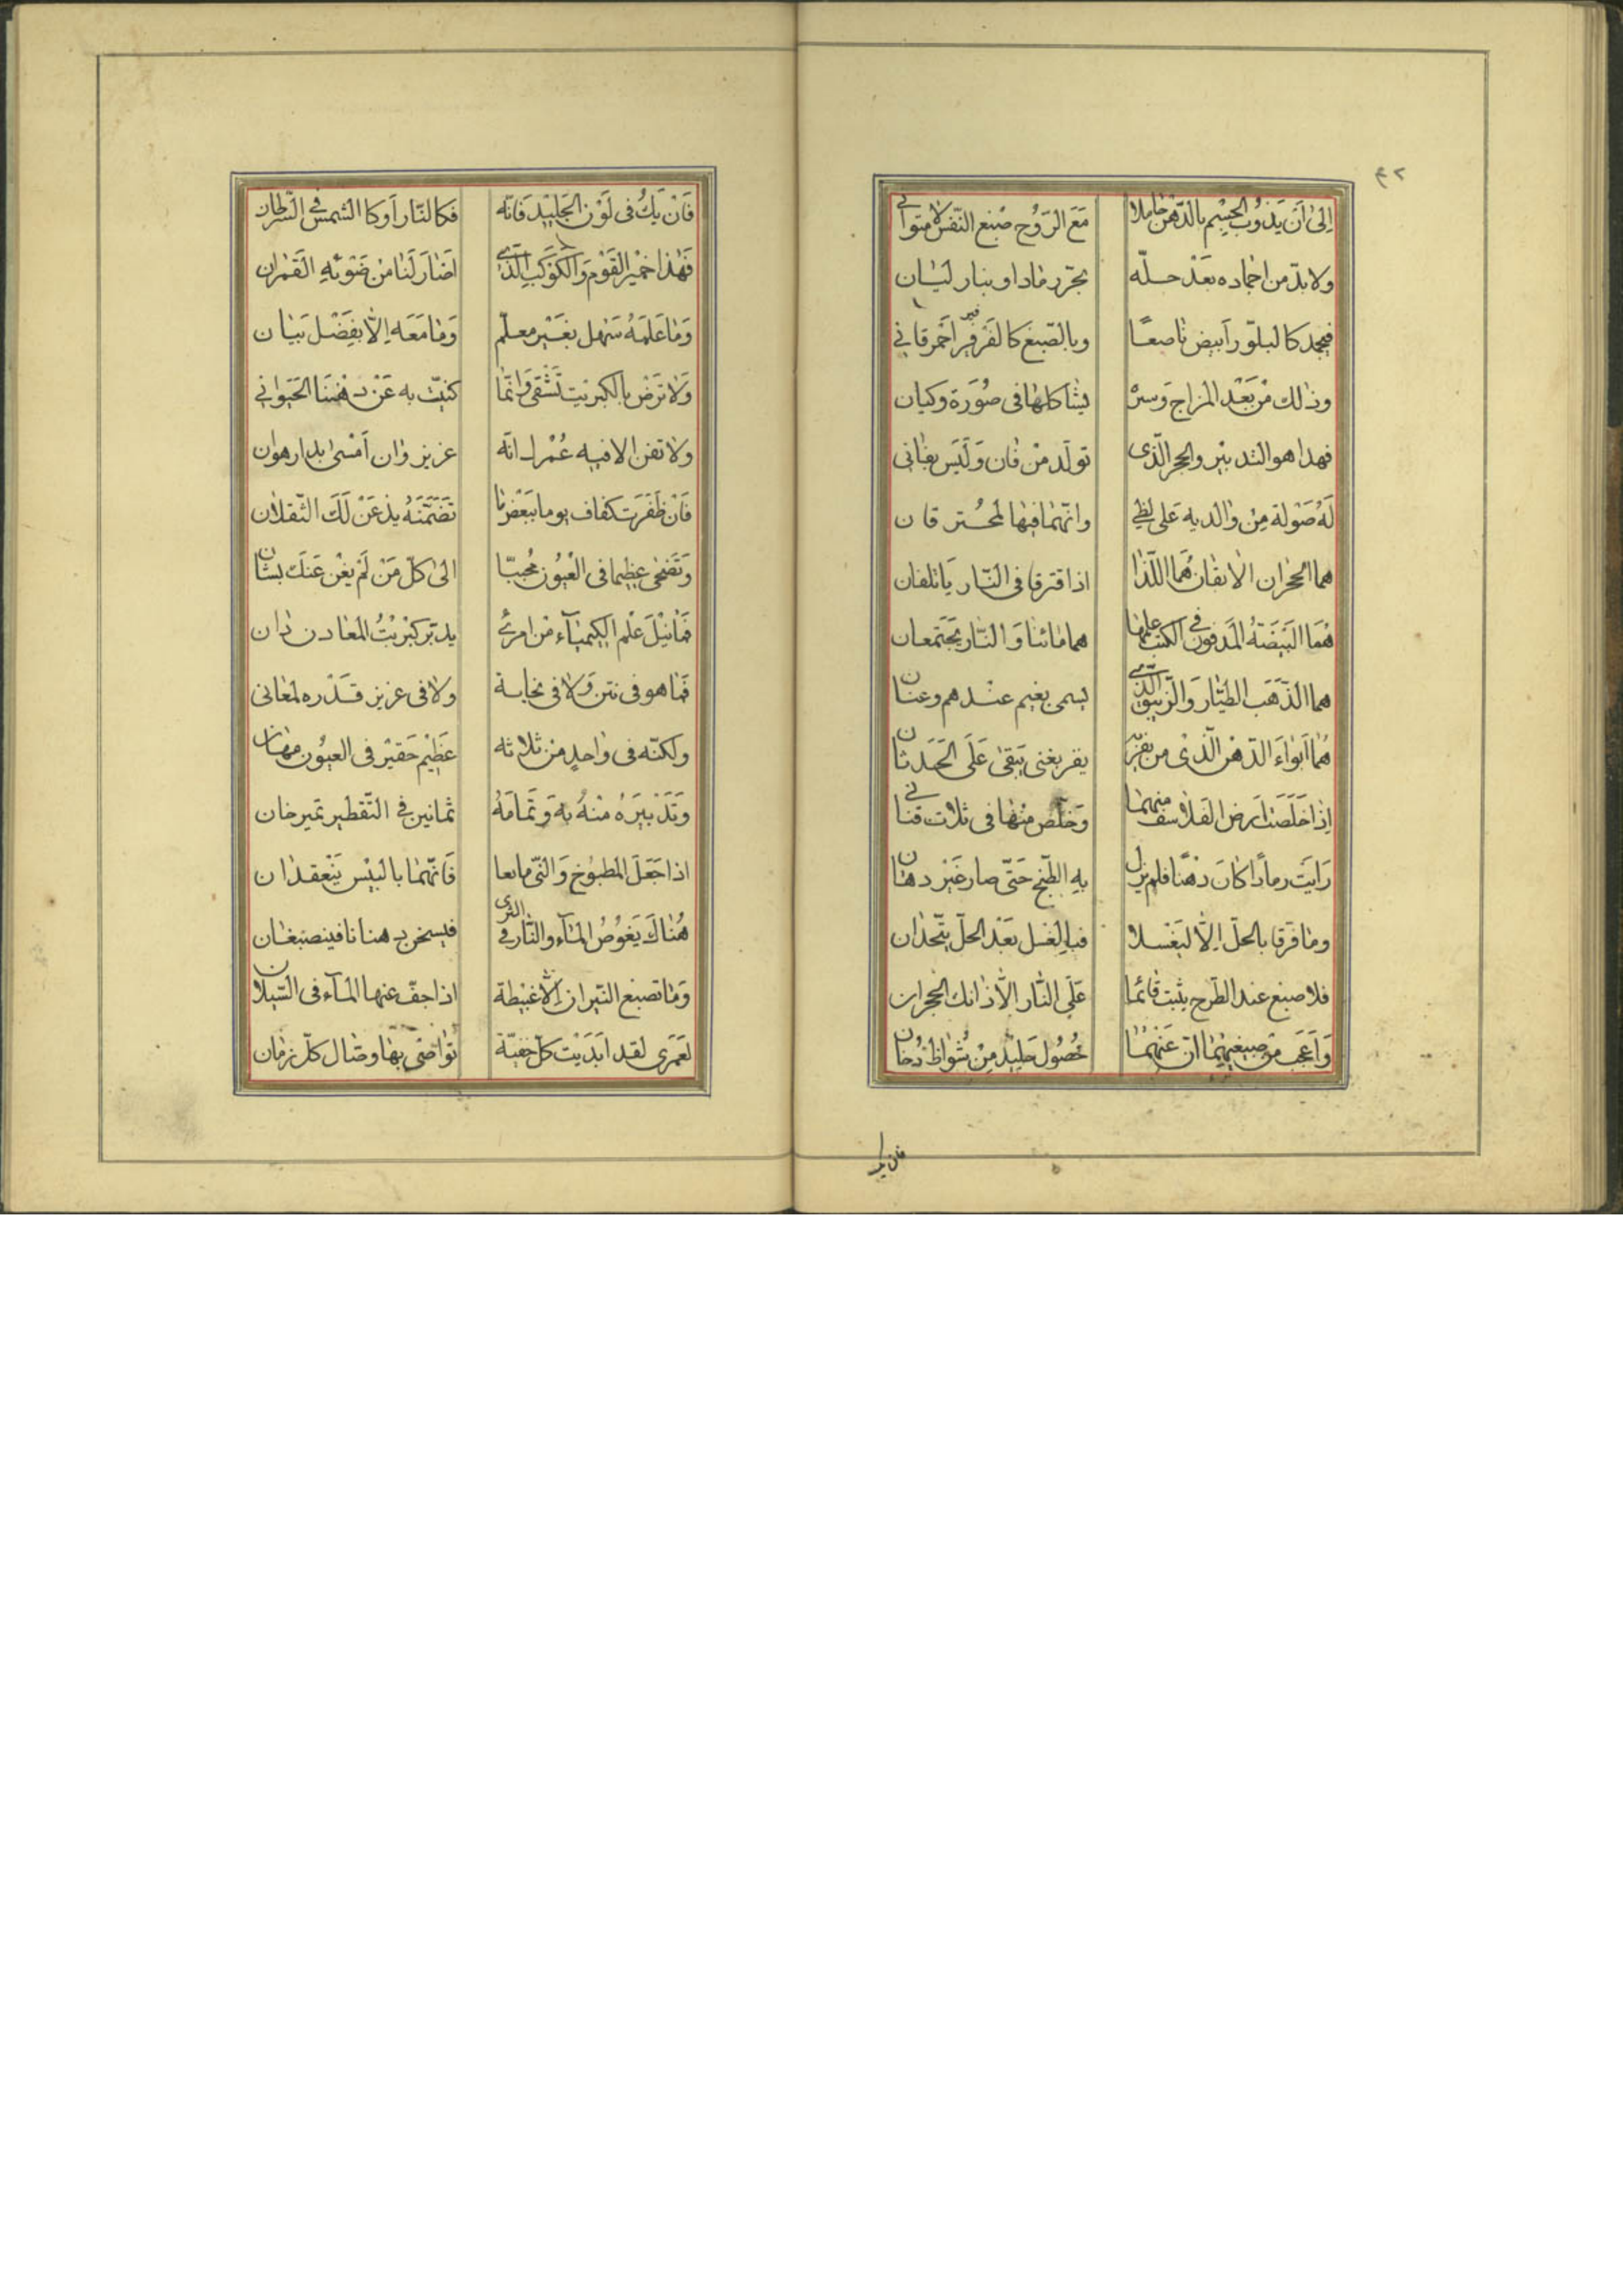 ٤٢
اِلىٰ اَنْ يَذُوبَ الجِسْم بالدّهْن حاملا مَعَ الرّوُح صْبغ النّفْس لا متوانى
ولا بدّ من اجماده بَعْدَ حلّه رمادا وبنار لَيٰان
فيجمد كالبلّور اَبيض ناصعًا وبالصّبغ كالفَرْفير اَحْمرقاني
وذلك مْن بَعْد المْزاج وَسرْ يشاكلها فى صُوَرة وكيان
فهذا هو التدبير والحجر الّذى تولّد مْن فان وَلَيَس بفانى
لَهُ صَوْلة مِنْ والديه عَلى لظي وانّهما فيها لمحُتر قان
هما الحجران الابقان هُمَا اللّذا اذا فترقا فى النّار ياتلفان
هُمَا البَيَضَتهُ المَدفون فى الكتب علمها هما مائنا وَالنّار يَجَتمعان
هما الذّهَب الطيّار وَالزّيبق الذّى يسمى بغيم عنْدهم وعنان
هُما اَبَواء الدّهْن الّذى من يفز به يفز بغنى يَبَقىٰ عَلَى الحَدَثان
اِذا خَلَصَت اَرض الفَلاسفه منهما وَخلّص منْها فى ثلاث قنانى
رَايَت رمادًا كانَ دْهنًا فلم يزل بهِ الطّبخ حَتّى صار غَيْر دهان
وما فرقا بالحلّ اِلّا ليَغْسلا فباِلغَسل بَعْد الحلّ يتّحدان
فلا صبغ عند الطّرح يثبت قائما عَلَى النّار الّا ذانك الحجران
وَاَعجَب من صبغيهما انّ عَنْهما حُصُول جليد مِنْ شُواظ دُخان
فان يك
فَانْ يَكُ فى لَوْن الجَليْد فَانّه فكالنّار اَوكا الشمس فى السّرطان
فَهْذا خمير القَوْم وَالكَوَكب الّذى اَضٰارَ لَنامْن ضَوْئهِ القَمْران
وَمٰا عَلمَهُ سَهل بغَيْر معلّم وَمٰا مَعَه اِلّا بفَضْل بَيان
وَلا تَرَض بالكبريت تَشْقى وَانّمّا كنيت به عَنْ دهْننا الحَيَوانى
ولا تفن الا فيه عُمْرك انّه عزيز وٰان اَمْسىٰ بدار هوان
فَانْ ظَفَرَت كفاف يوما ببَعْضها تضَمَّنَهُ يذعَنْ لَكَ الثّقلان
وَتَضْحى عظيما فى العُيُون مُحببّا الىٰ كلّ مَنْ لَمْ يغْن عَنكَ بشان
فَما نيْلَ عْلم الكِيمياَء مْن امرئ يدبّر كبْريْتُ المعَا دن ذان
فَما هو فى نتن وَلا فى نجاسة ولا فى عزيز قَدْره لمعانى
ولكنّه فى وٰاحدٍ منْ ثلاثه عَظِيْم حَقيْر فى العيُون مهان
وَتَدْبيَرهُ منْهُ بهَ وَتَمامَهُ ثمانين فى التّقطير ثميرخان
اذا جَعَلَ المطبوُخ وَالنّى مايعا فَانّهما بالبيْس يَنْعقدان
هُنٰاكَ يَغوُصُ المآء والنّار فى الثرى فيسخن دهنانا فينصبغان
وَمٰا تصبغ النّيران اِلّا غبيطة اذا جفّ عنها المآء فى السّيلان
لعَمْرى لقد ابَدَيْت كلّ خفيّة تواصَى بها وضال كلّ زمان